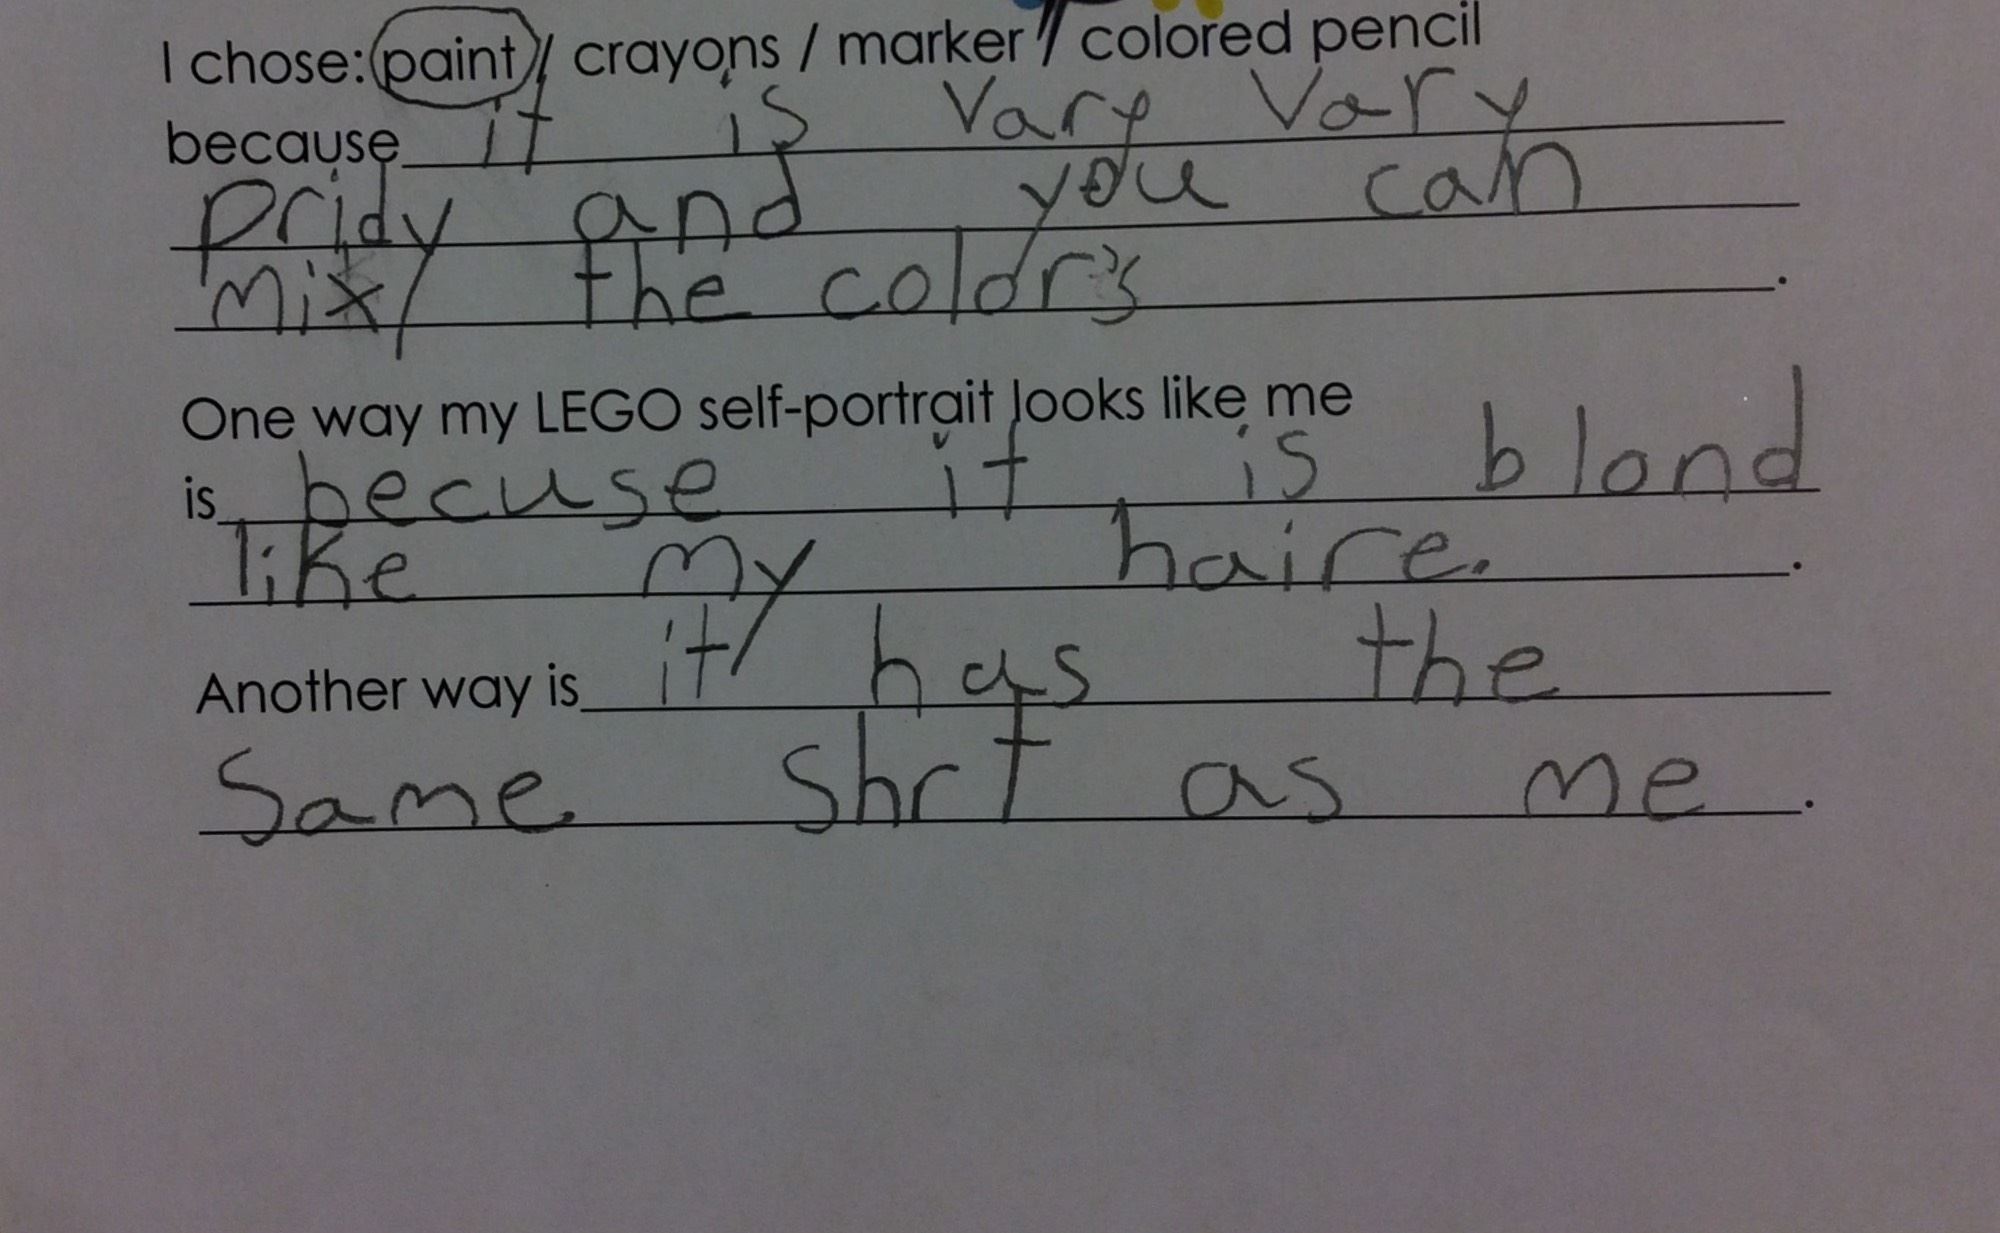 I chose: paint / crayons / marker / colored pencil
because it is vary vary
pridy and you can
mix the colors.
One way my LEGO self-portrait looks like me
is becuse it is blond
like my haire. .
Another way is it has the
same shrt as me.